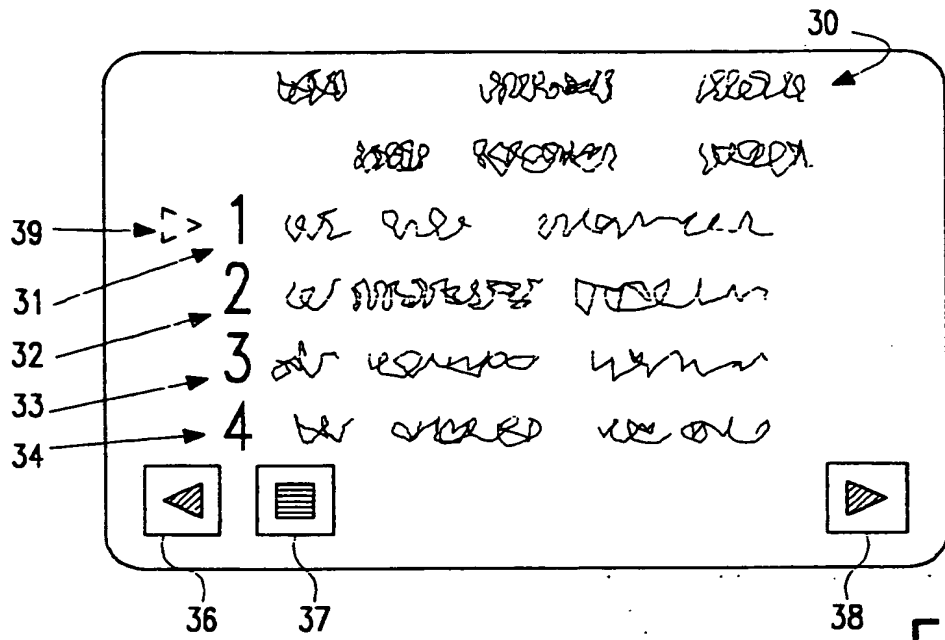 30
39 1
31 2
32
33 3
34 4
36 37 38